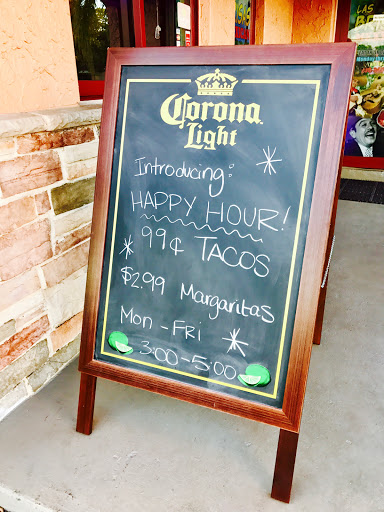 Corona
Light
Introducing:
HAPPY HOUR!
99¢ TACOS
$2.99 Margaritas
Mon - Fri
3:00 - 5:00
LAS